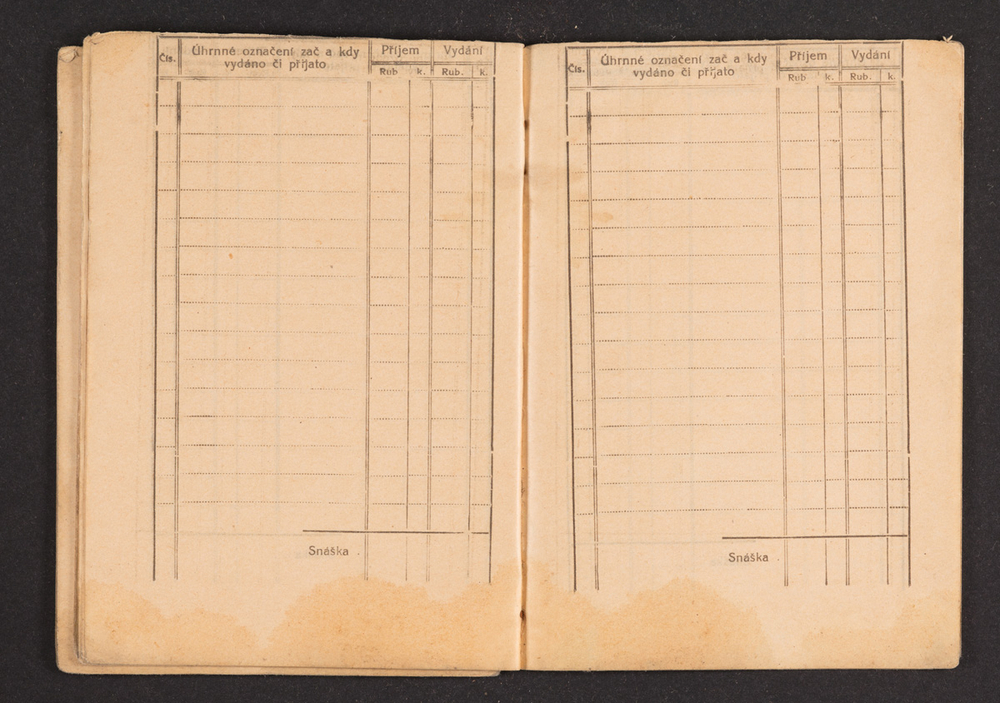 Čís. Úhrnné označení zač a kdy Příjem Vydání
vydáno či přijato Rub k. Rub. k.
Snáška .
Čís. Úhrnné označení zač a kdy Příjem Vydání
vydáno či přijato Rub k. Rub. k.
Snáška .